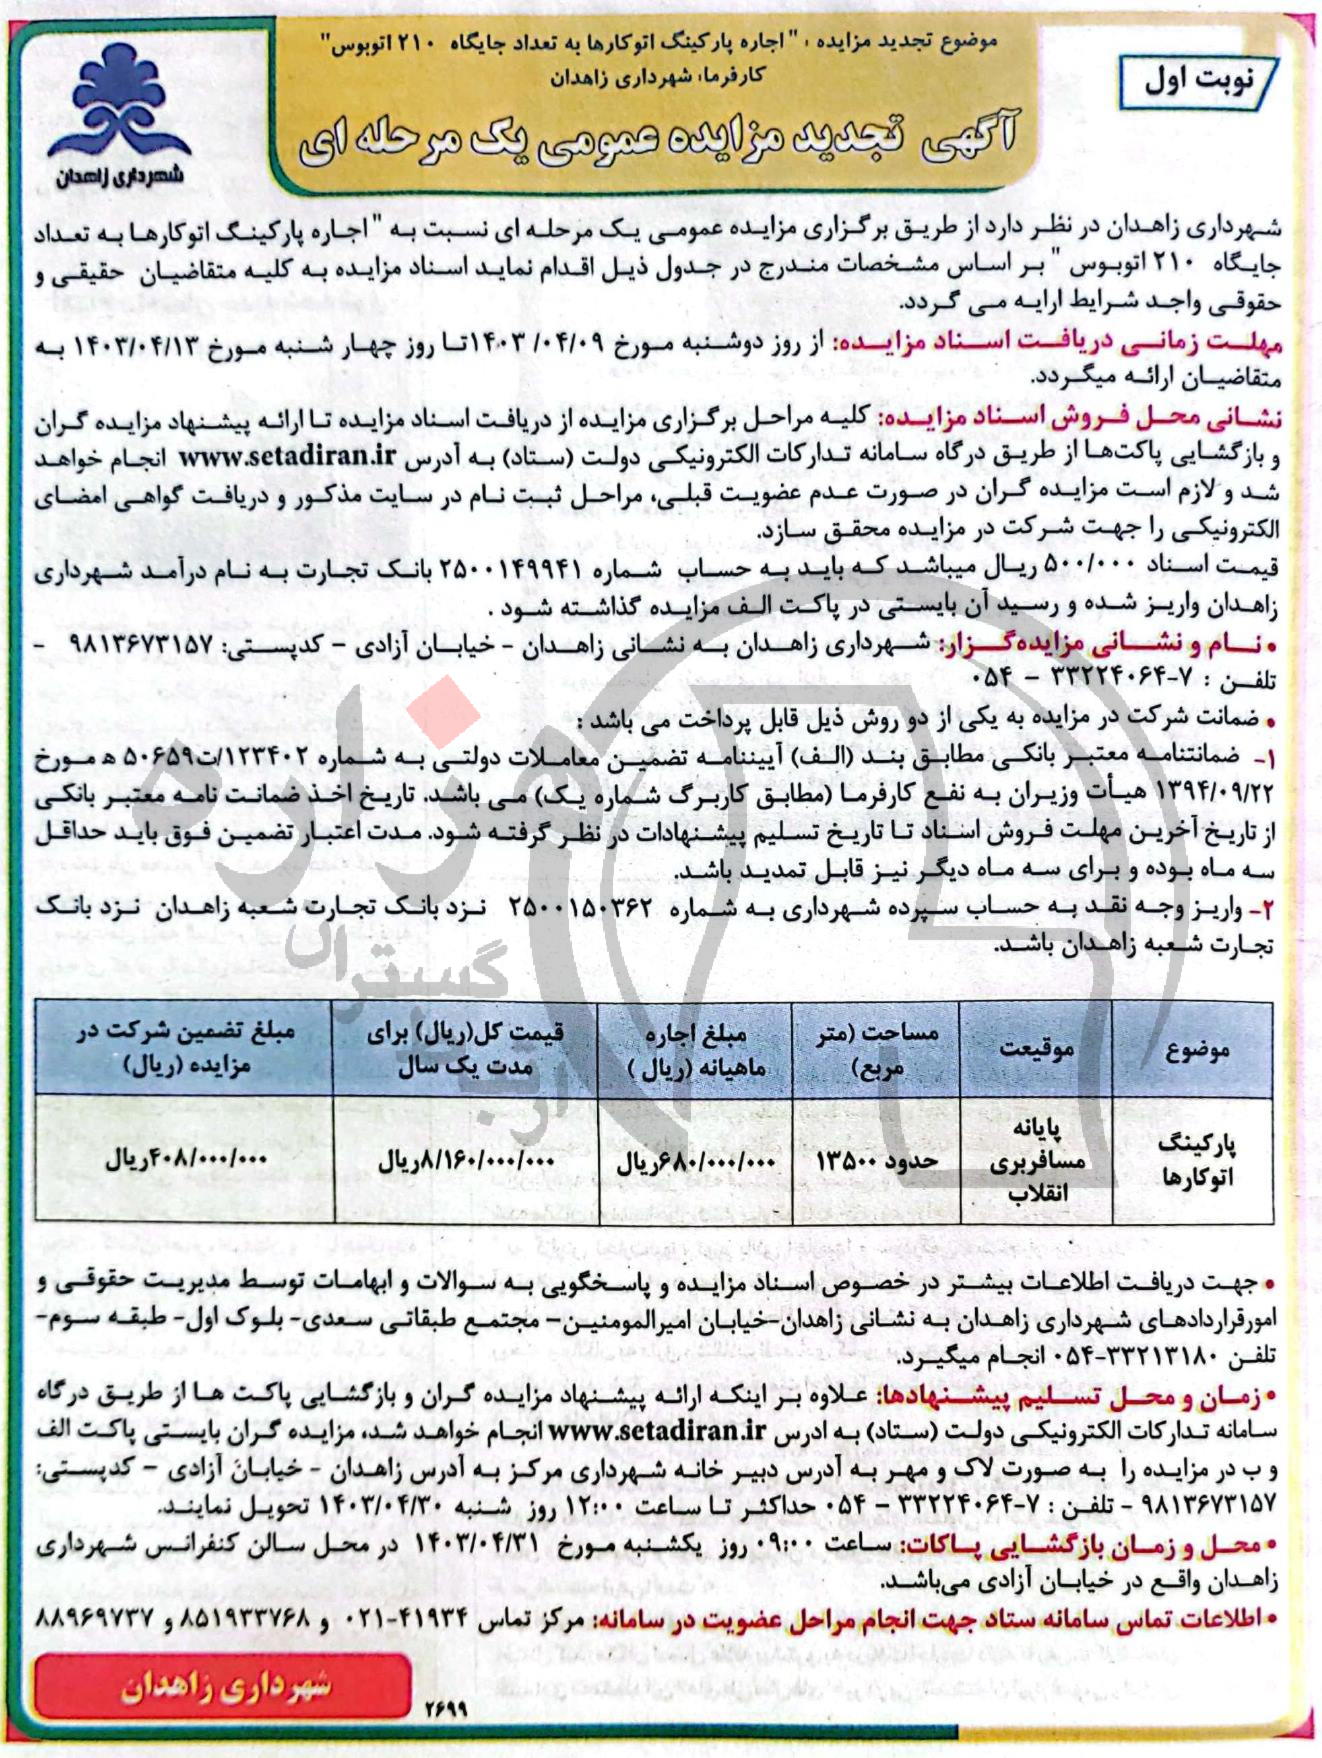 موضوع تجدید مزایده : " اجاره پارکینگ اتوکارها به تعداد جایگاه ۲۱۰ اتوبوس"
کارفرما: شهرداری زاهدان
نوبت اول
آگهی تجدید مزایده عمومی یک مرحله ای
شهرداری زاهدان
شهرداری زاهدان در نظر دارد از طریق برگزاری مزایده عمومی یک مرحله ای نسبت به " اجاره پارکینگ اتوکارها به تعداد
جایگاه ۲۱۰ اتوبوس " بر اساس مشخصات مندرج در جدول ذیل اقدام نماید اسناد مزایده به کلیه متقاضیان حقیقی و
حقوقی واجد شرایط ارایه می گردد.
مهلت زمانی دریافت اسناد مزایده: از روز دوشنبه مورخ ۱۴۰۳/۰۴/۰۹ تا روز چهار شنبه مورخ ۱۴۰۳/۰۴/۱۳ به
متقاضیان ارائه میگردد.
نشانی محل فروش اسناد مزایده: کلیه مراحل برگزاری مزایده از دریافت اسناد مزایده تا ارائه پیشنهاد مزایده گران
و بازگشایی پاکت‌ها از طریق درگاه سامانه تدارکات الکترونیکی دولت (ستاد) به آدرس www.setadiran.ir انجام خواهد
شد و لازم است مزایده گران در صورت عدم عضویت قبلی، مراحل ثبت نام در سایت مذکور و دریافت گواهی امضای
الکترونیکی را جهت شرکت در مزایده محقق سازد.
قیمت اسناد ۵۰۰/۰۰۰ ریال میباشد که باید به حساب شماره ۲۵۰۰۱۴۹۹۴۱ بانک تجارت به نام درآمد شهرداری
زاهدان واریز شده و رسید آن بایستی در پاکت الف مزایده گذاشته شود .
• نام و نشانی مزایده‌گزار: شهرداری زاهدان به نشانی زاهدان - خیابان آزادی - کدپستی: ۹۸۱۳۶۷۳۱۵۷ -
تلفن : ۷-۳۳۲۲۴۰۶۴ - ۰۵۴
• ضمانت شرکت در مزایده به یکی از دو روش ذیل قابل پرداخت می باشد :
۱- ضمانتنامه معتبر بانکی مطابق بند (الف) آییننامه تضمین معاملات دولتی به شماره ۱۲۳۴۰۲/ت۵۰۶۵۹ ه مورخ
۱۳۹۴/۰۹/۲۲ هیأت وزیران به نفع کارفرما (مطابق کاربرگ شماره یک) می باشد. تاریخ اخذ ضمانت نامه معتبر بانکی
از تاریخ آخرین مهلت فروش اسناد تا تاریخ تسلیم پیشنهادات در نظر گرفته شود. مدت اعتبار تضمین فوق باید حداقل
سه ماه بوده و برای سه ماه دیگر نیز قابل تمدید باشد.
۲- واریز وجه نقد به حساب سپرده شهرداری به شماره ۲۵۰۰۱۵۰۳۶۲ نزد بانک تجارت شعبه زاهدان نزد بانک
تجارت شعبه زاهدان باشد.
موضوع | موقیعت | مساحت (متر مربع) | مبلغ اجاره ماهیانه (ریال ) | قیمت کل(ریال) برای مدت یک سال | مبلغ تضمین شرکت در مزایده (ریال)
پارکینگ اتوکارها | پایانه مسافربری انقلاب | حدود ۱۳۵۰۰ | ۶۸۰/۰۰۰/۰۰۰ریال | ۸/۱۶۰/۰۰۰/۰۰۰ریال | ۴۰۸/۰۰۰/۰۰۰ریال
• جهت دریافت اطلاعات بیشتر در خصوص اسناد مزایده و پاسخگویی به سوالات و ابهامات توسط مدیریت حقوقی و
امورقراردادهای شهرداری زاهدان به نشانی زاهدان-خیابان امیرالمومنین- مجتمع طبقاتی سعدی- بلوک اول- طبقه سوم-
تلفن ۳۳۲۱۳۱۸۰-۰۵۴ انجام میگیرد.
• زمان و محل تسلیم پیشنهادها: علاوه بر اینکه ارائه پیشنهاد مزایده گران و بازگشایی پاکت ها از طریق درگاه
سامانه تدارکات الکترونیکی دولت (ستاد) به ادرس www.setadiran.ir انجام خواهد شد، مزایده گران بایستی پاکت الف
و ب در مزایده را به صورت لاک و مهر به آدرس دبیر خانه شهرداری مرکز به آدرس زاهدان - خیابان آزادی - کدپستی:
۹۸۱۳۶۷۳۱۵۷ - تلفن : ۷-۳۳۲۲۴۰۶۴ - ۰۵۴ حداکثر تا ساعت ۱۲:۰۰ روز شنبه ۱۴۰۳/۰۴/۳۰ تحویل نمایند.
• محل و زمان بازگشایی پاکات: ساعت ۰۹:۰۰ روز یکشنبه مورخ ۱۴۰۳/۰۴/۳۱ در محل سالن کنفرانس شهرداری
زاهدان واقع در خیابان آزادی می‌باشد.
• اطلاعات تماس سامانه ستاد جهت انجام مراحل عضویت در سامانه: مرکز تماس ۴۱۹۳۴-۰۲۱ و ۸۵۱۹۳۳۷۶۸ و ۸۸۹۶۹۷۳۷
شهرداری زاهدان
۲۶۹۹